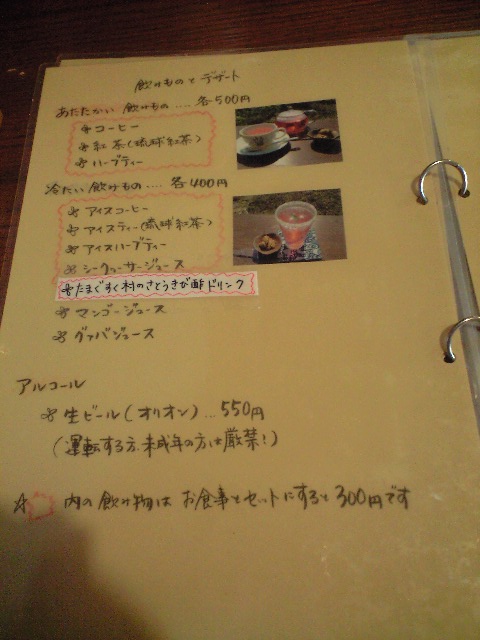 飲みものとデザート
あたたかい飲みもの.... 各500円
コーヒー
紅茶(琉球紅茶)
ハーブティー
冷たい飲みもの.... 各400円
アイスコーヒー
アイスティー(琉球紅茶)
アイスハーブティー
シークヮーサージュース
たまぐすく村のさとうきび酢ドリンク
マンゴージュース
グァバジュース
アルコール
生ビール(オリオン)...550円
(運転する方、未成年の方は厳禁!)
内の飲み物は お食事とセットにすると300円です